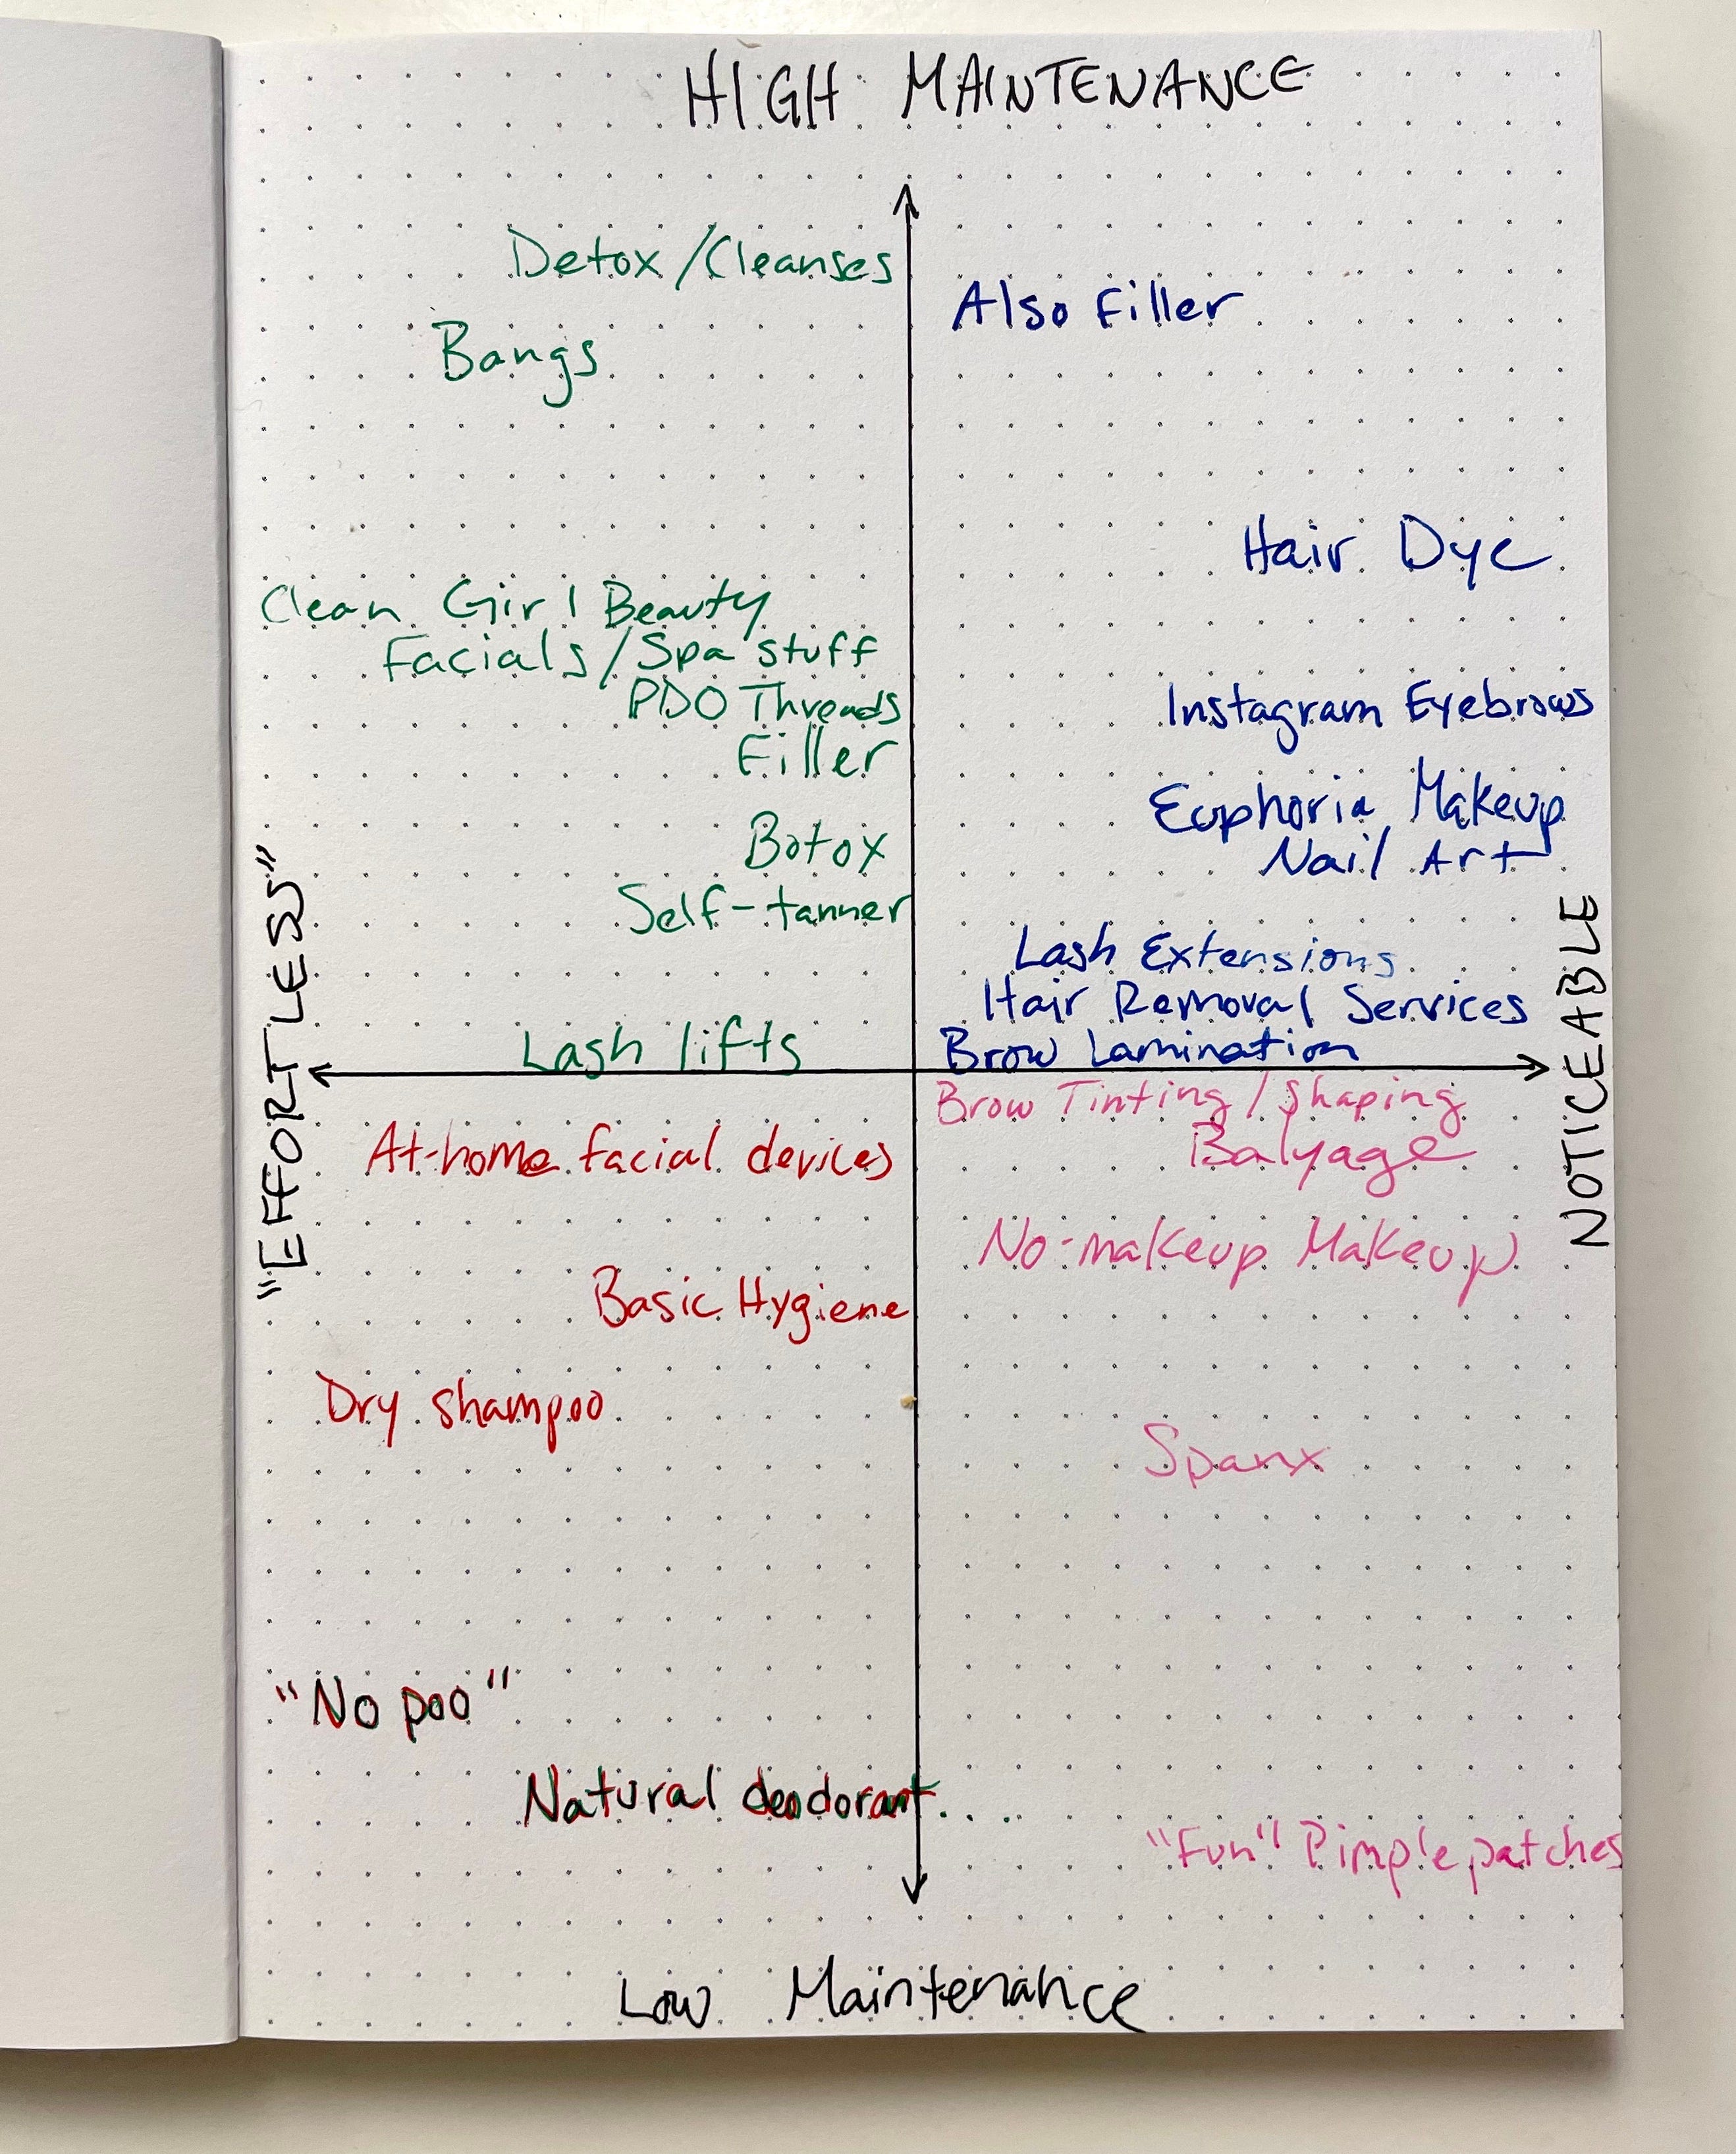 HIGH MAINTENANCE
Detox/Cleanses
Also Filler
Bangs
Hair Dye
Clean Girl Beauty
Facials/Spa stuff
PDO Threads
Instagram Eyebrows
Filler
Euphoria Makeup
Botox
Nail Art
Self-tanner
Lash Extensions
Hair Removal Services
Lash lifts
Brow Lamination
"EFFORTLESS"
NOTICEABLE
Brow Tinting/Shaping
At-home facial devices
Balyage
No-makeup Makeup
Basic Hygiene
Dry shampoo
Spanx
"No poo"
Natural deodorant...
"Fun" Pimple patches
Low Maintenance